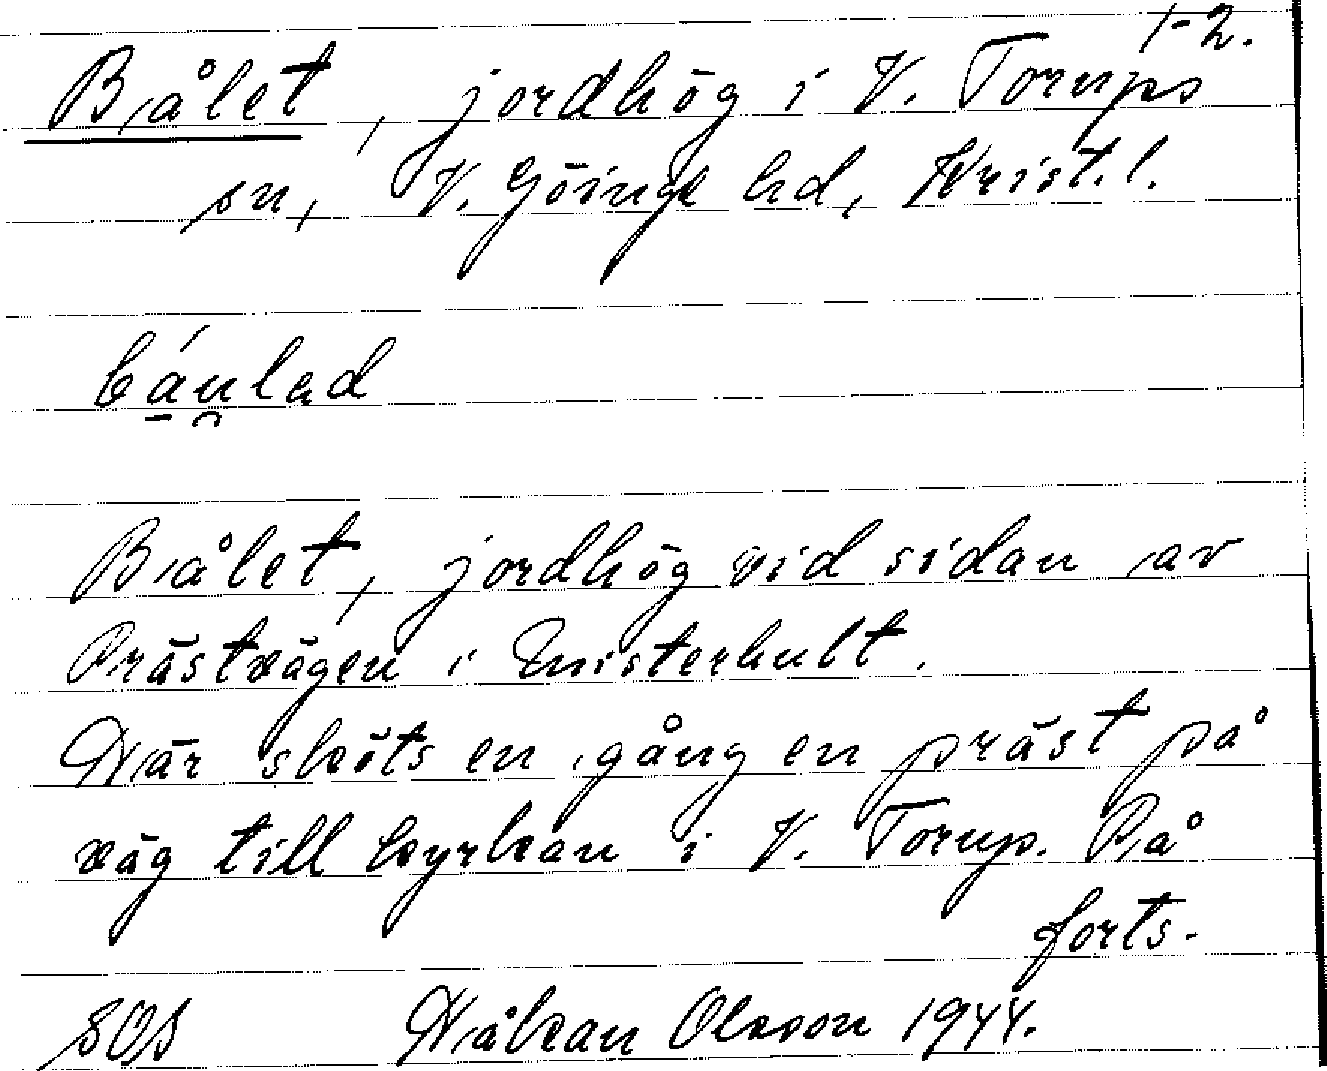 1-2.
Bålet, jordhög i V. Torups
sn, V. Göinge hd, Krist. l.
bá̱u̯lad
Bålet, jordhög vid sidan av
Prästvägen i Emisterhult.
Här sköts en gång en präst på
väg till kyrkan i V. Torup. På
forts.
SOS Håkan Olsson 1944.